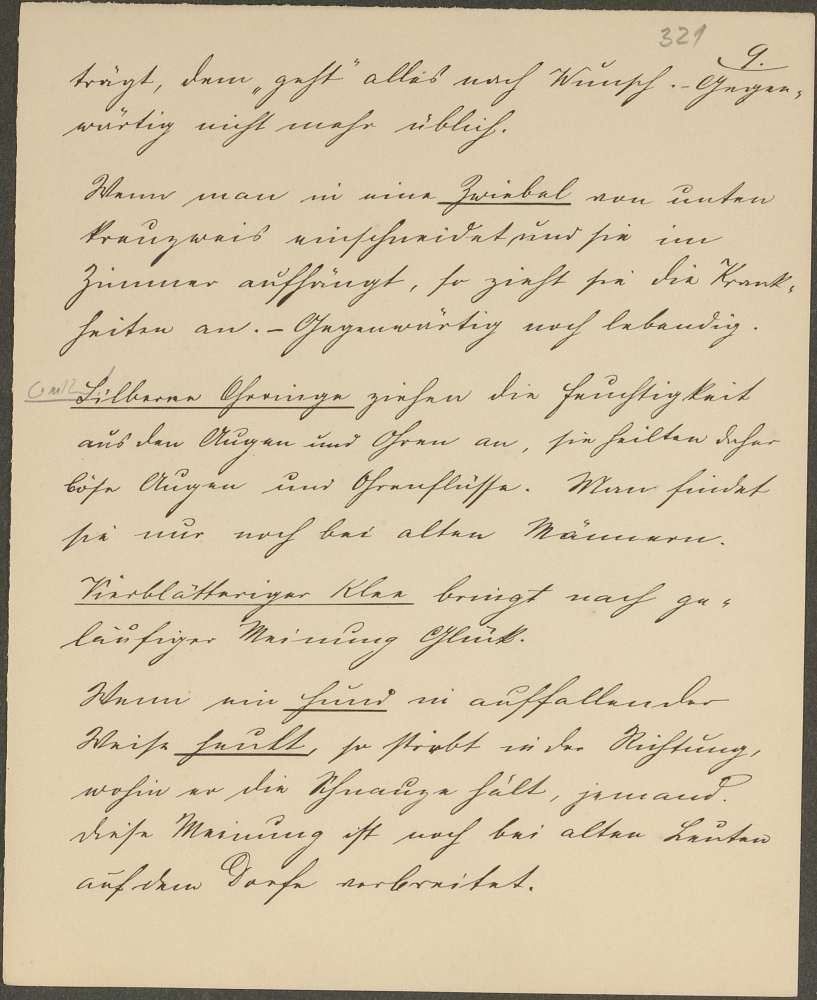 321
9.
trägt, dem „geht“ alles nach Wunsch. - Gegen-
wärtig nicht mehr üblich.
Wenn man in eine Zwiebel von unten
kreuzweis einschneidet und sie im
Zimmer aufhängt, so zieht sie die Krank-
heiten an. - Gegenwärtig noch lebendig.
Silberne Ohrringe ziehen die Feuchtigkeit
aus den Augen und Ohren an, sie heilten daher
böse Augen und Ohrenflüsse. Man findet
sie nur noch bei alten Männern.
Vierblätteriger Klee bringt nach ge-
läufiger Meinung Glück.
Wenn ein Hund in auffallender
Weise heult, so stirbt in der Richtung,
wohin er die Schnauze hält, jemand.
Diese Meinung ist noch bei alten Leuten
auf dem Dorfe verbreitet.